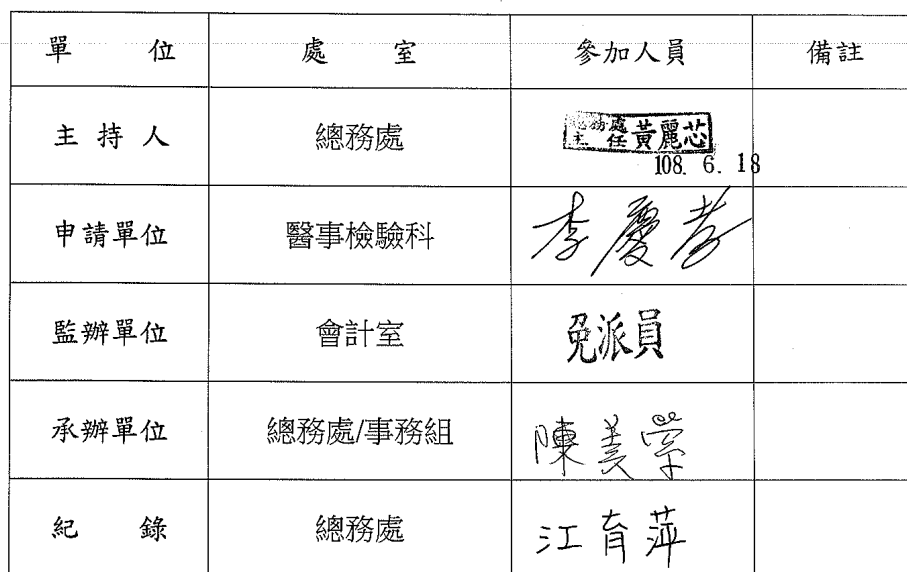 單 位 處 室 參加人員 備註
主 持 人 總務處 總務處主任 黃麗芯
108. 6. 18
申請單位 醫事檢驗科 李慶孝
監辦單位 會計室 免派員
承辦單位 總務處/事務組 陳美
紀 錄 總務處 江育萍